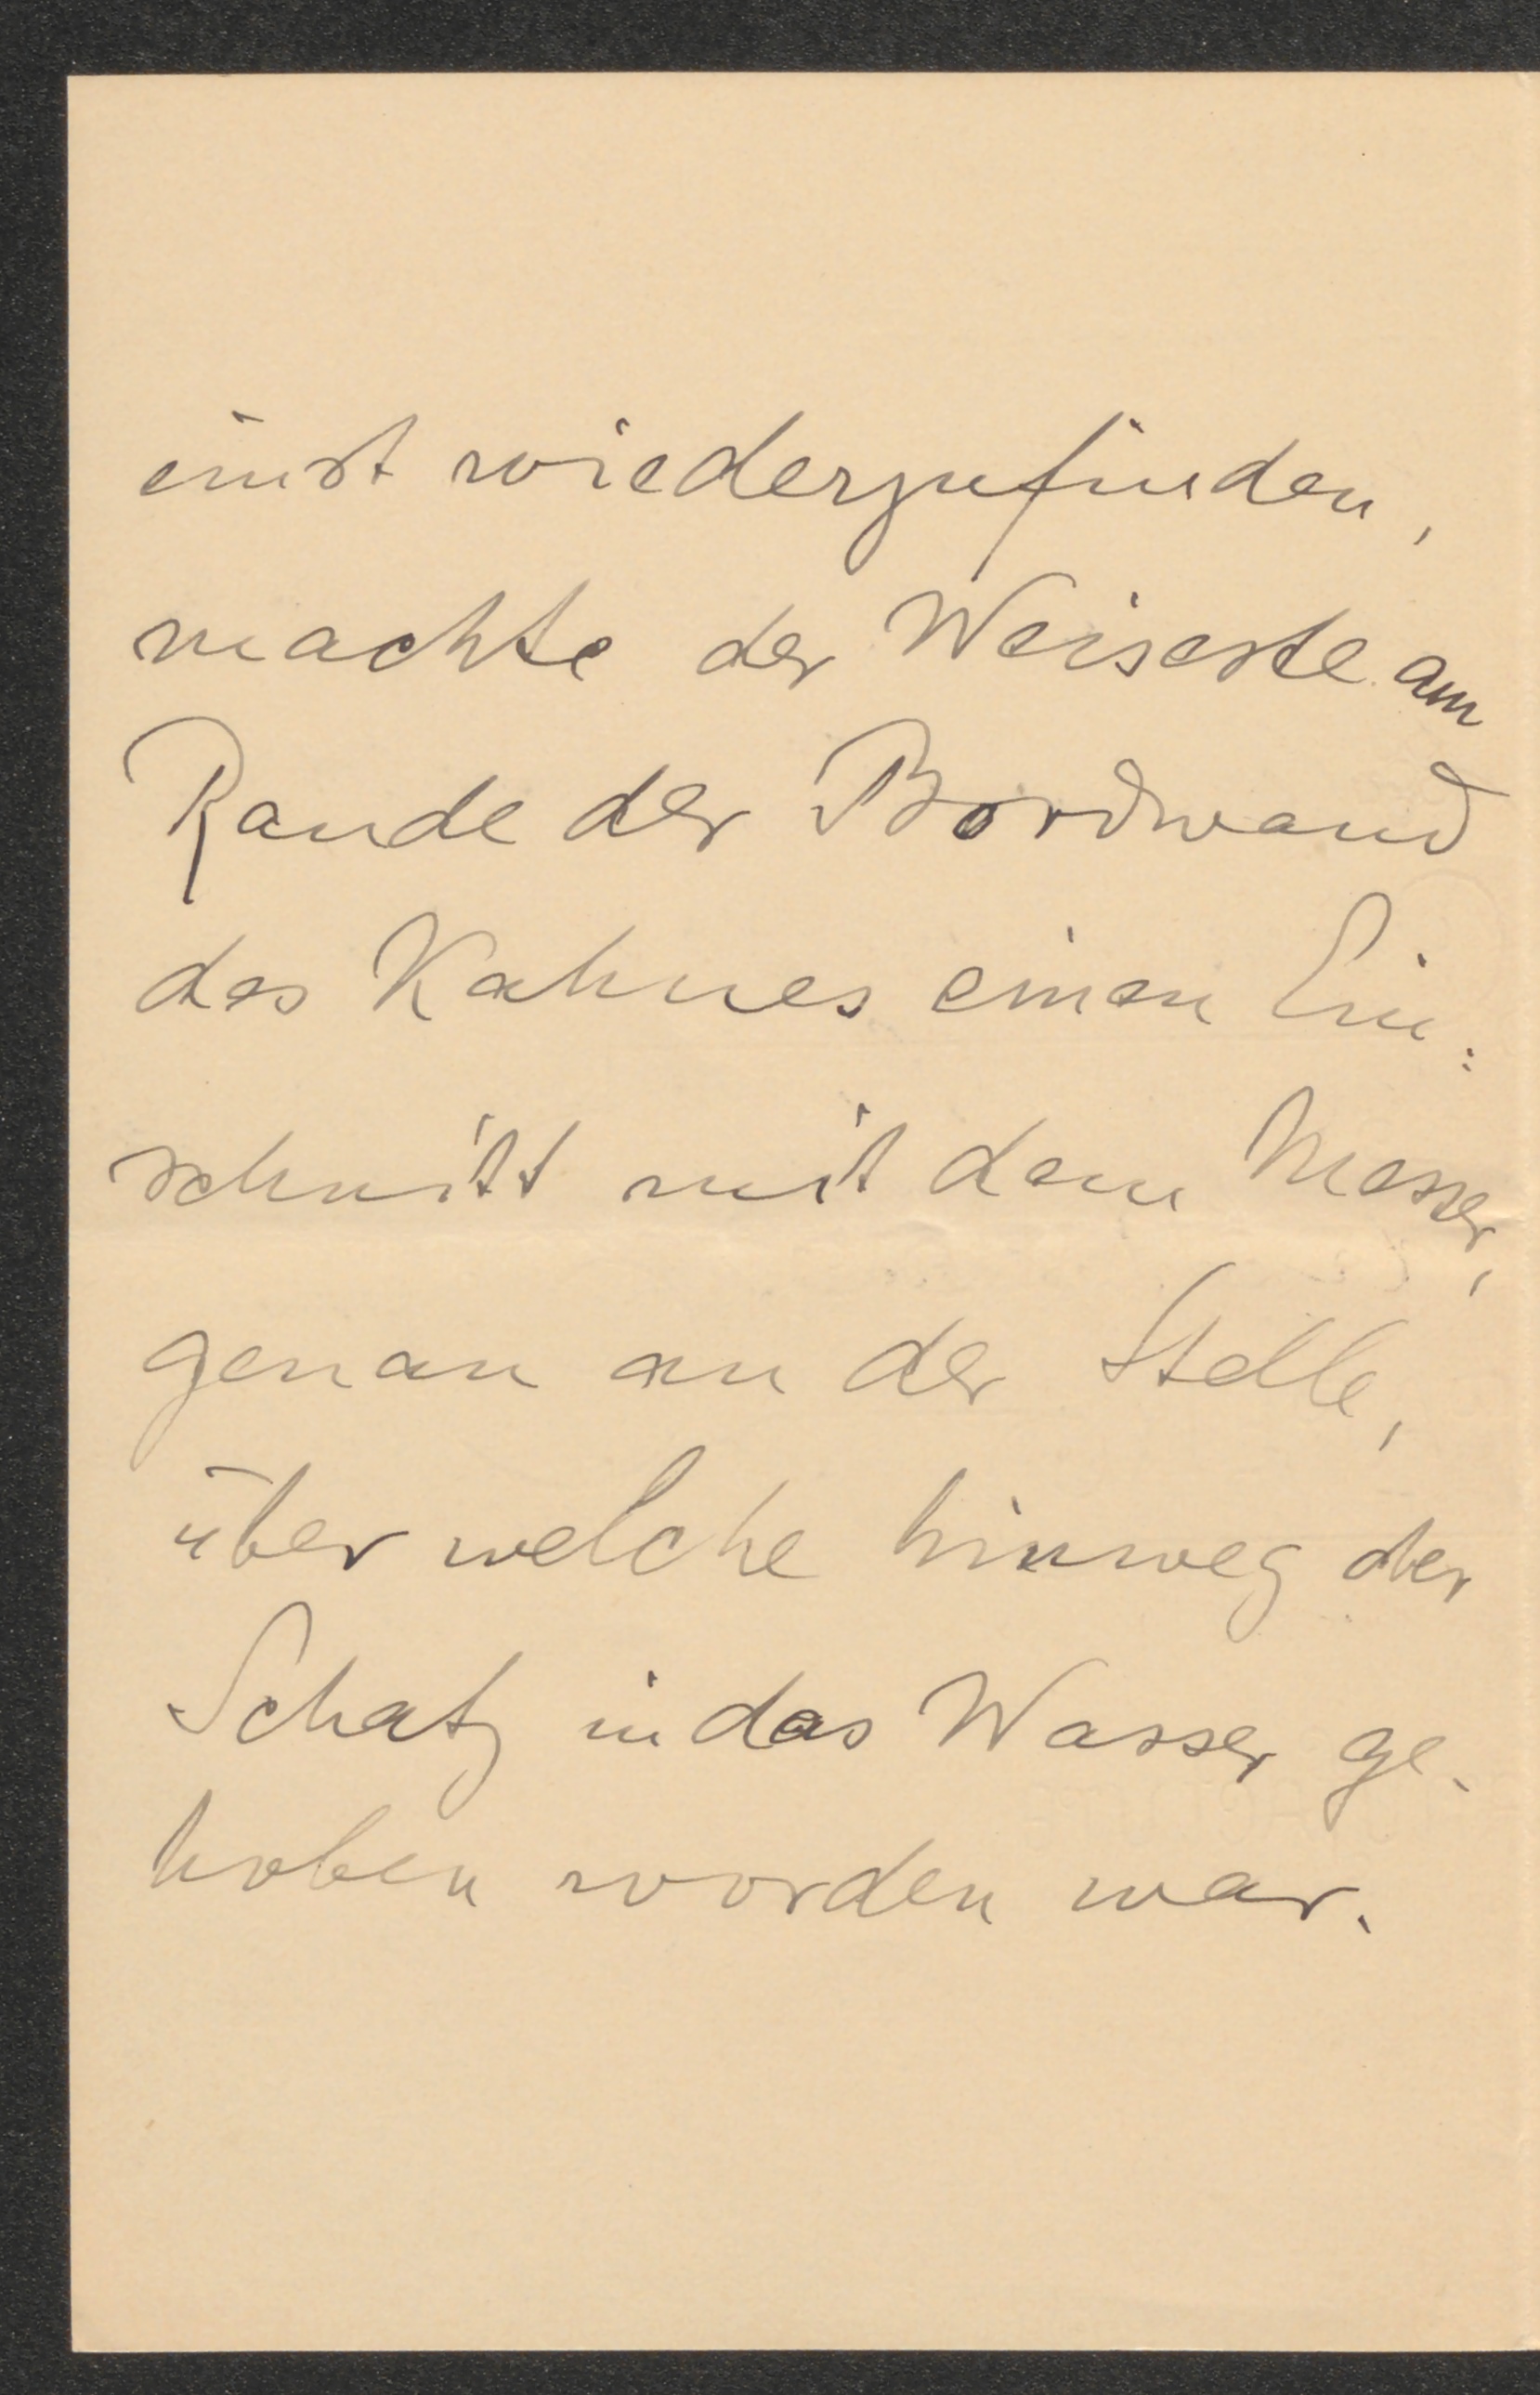 einst wiederzufinden,
machte der Weiseste am
Rande der Bordwand
des Kahnes einen Ein:
schnitt mit dem Messer,
genau an der Stelle,
über welche hinweg der
Schatz in das Wasser ge-
hoben worden war.